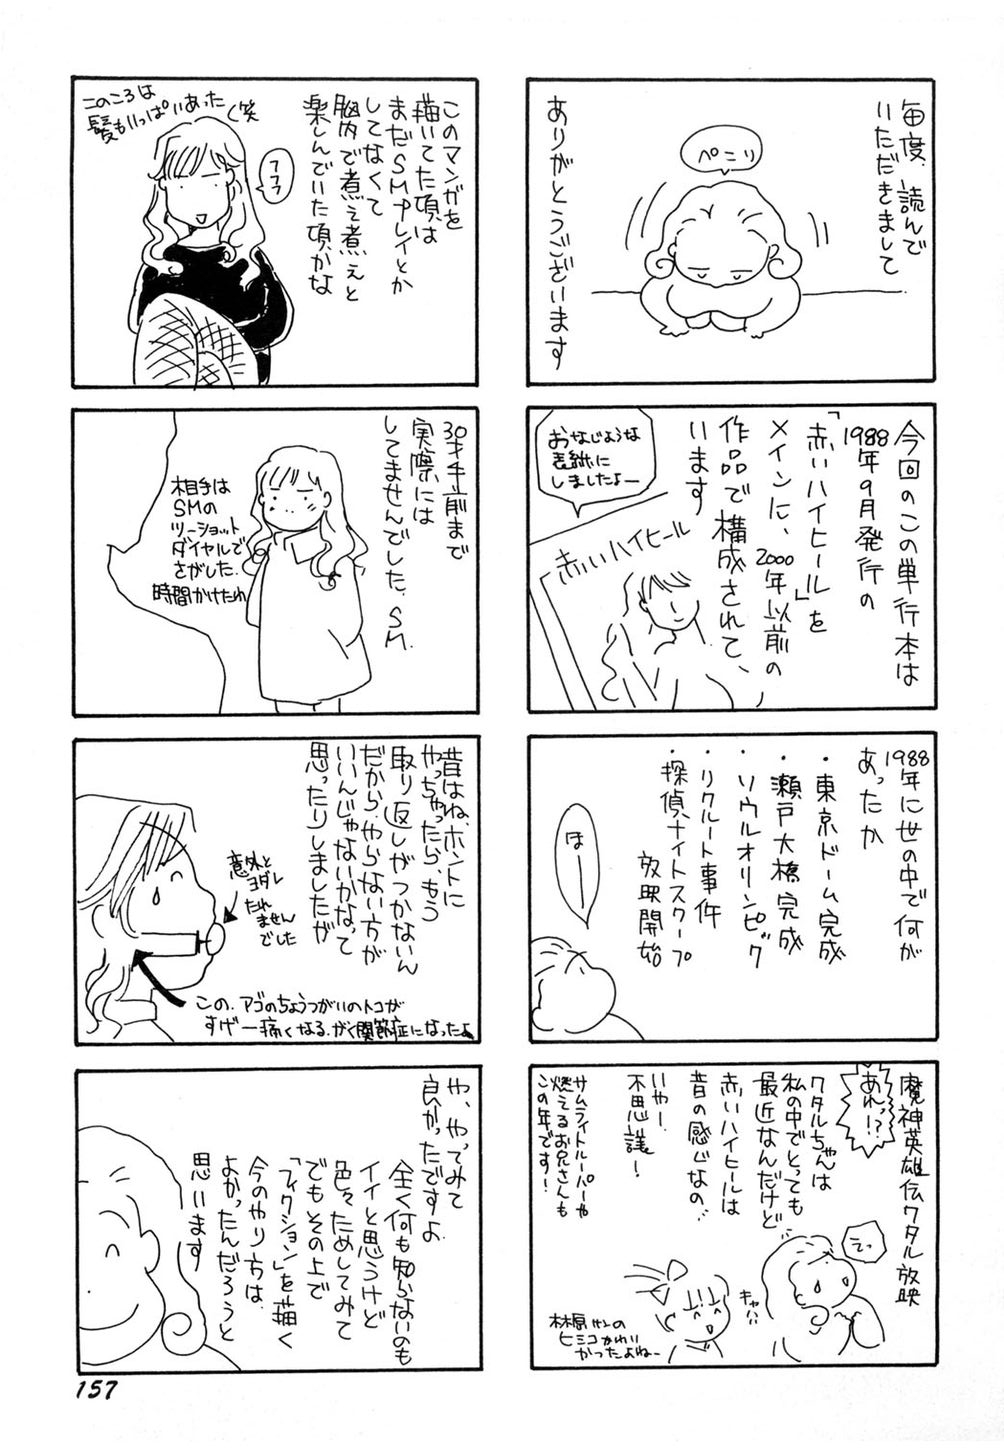 毎度、読んで
いただきまして
ありがとうございます
ペこり
今回のこの単行本は
1988年9月発行の
「赤いハイヒール」を
メインに、2000年以前の
作品で構成されて、
います
おなじような
表紙に
しましたよー
赤いハイヒール
1988年に世の中で何が
あったか
・東京ドーム完成
・瀬戸大橋完成
・ソウルオリンピック
・リクルート事件
・探偵ナイトスクープ
放映開始
ほーー
魔神英雄伝ワタル放映
あれっ!?
ワタルちゃんは
私の中でとっても
最近なんだけど
赤いハイヒールは
昔の感じなの…
いやー
不思議!
サムライトルーパーや
燃えるお兄さんも
この年です!
えっ
キャハハ
林原さんの
ヒミコかわい
かったよねー
このマンガを
描いてた頃は
まだSMプレイとか
してなくて
脳内で煮え煮えと
楽しんでいた頃かな
このころは
髪もいっぱいあった(笑
フフフ
30才手前まで
実際には
してませんでした、SM
相手は
SMの
ツーショット
ダイヤルで
さがした。
時間かけたわ
昔はね、ホントに
やっちゃったら、もう
取り返しがつかないん
だから、やらない方が
いいんじゃないかなって
思ったりしましたが
意外と
ヨダレ
たれ
ません
でした
この、アゴのちょうつがいのトコが
すげー痛くなる、がく関節症になったよ
や、やってみて
良かったですよ
全く何も知らないのも
イイと思うけど
色々ためしてみて
でもその上で
「フィクション」を描く
今のやり方は、
よかったんだろうと
思います
157